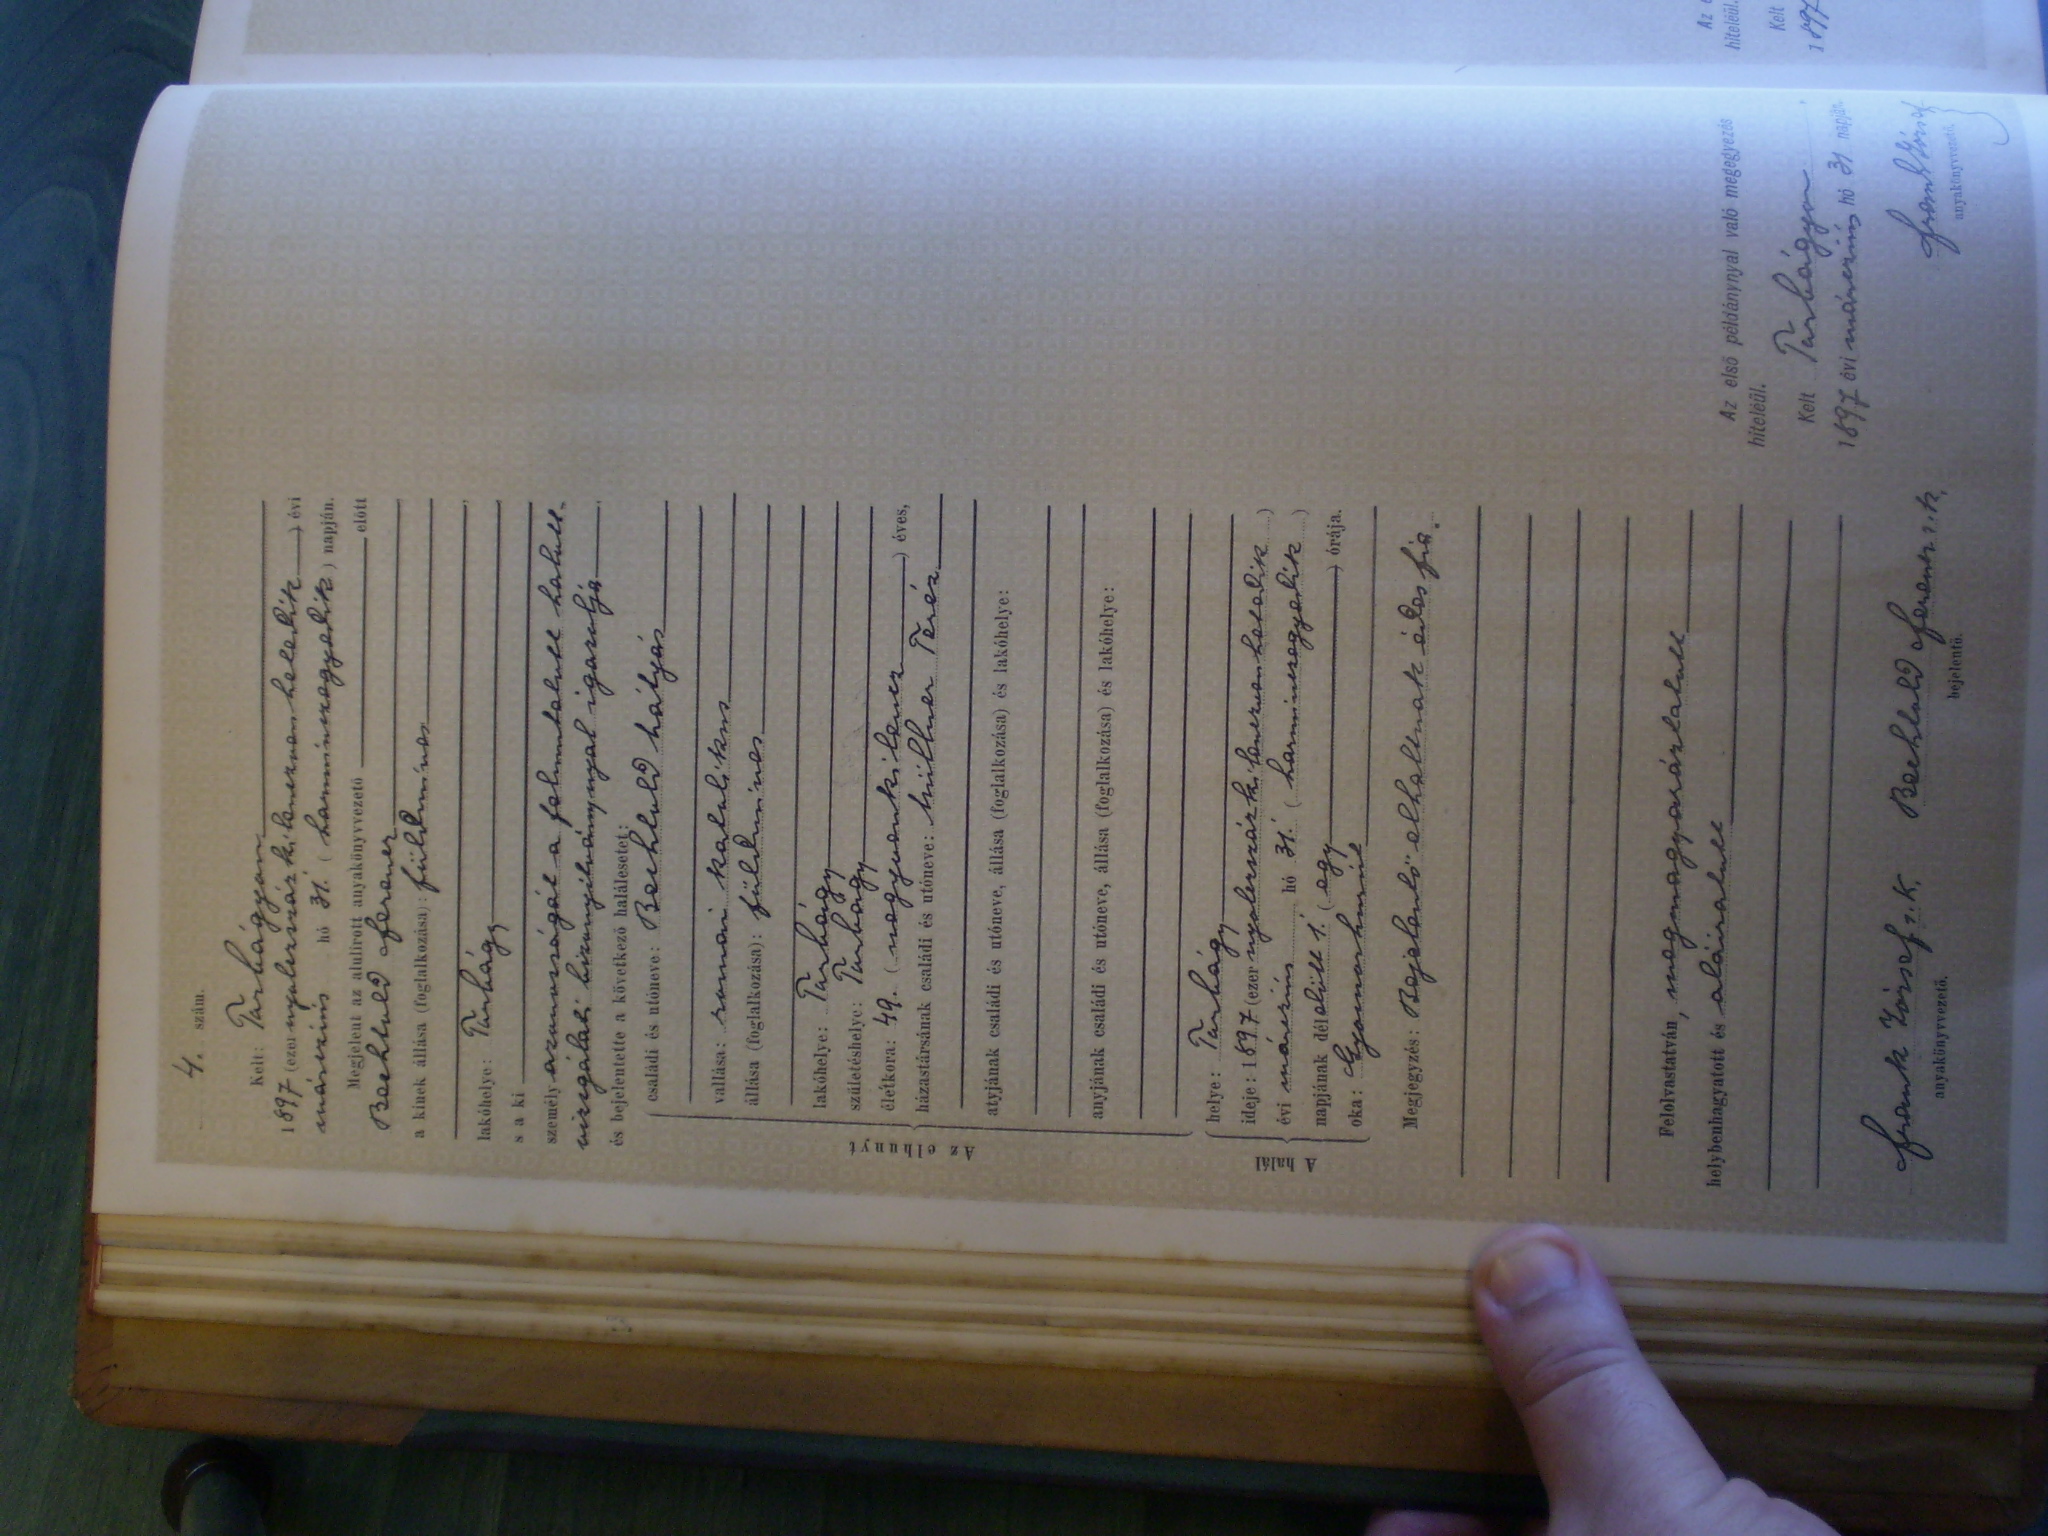 4. szám.
Kelt: Türhágyon
1897 (ezernyolczszázkilenczvenhetedik) évi
márczius hó 31. (harminczegyedik) napján.
Megjelent az alulirott anyakönyvvezető előtt
Bechtold Ferencz
a kinek állása (foglalkozása): földmíves
lakóhelye: Türhágy
s a ki
személyazonosságát a felmutatott halott-
vizsgálati bizonyítványnyal igazolja
és bejelentette a következő halálesetet:
Az elhunyt
családi és utóneve: Bechtold Mátyás
vallása: római katolikus
állása (foglalkozása): földmíves
lakóhelye: Türhágy
születéshelye: Türhágy
életkora: 49. (negyvenkilencz) éves,
házastársának családi és utóneve: Müllner Teréz
atyjának családi és utóneve, állása (foglalkozása) és lakóhelye:
anyjának családi és utóneve, állása (foglalkozása) és lakóhelye:
A halál
helye: Türhágy
ideje: 1897 (ezernyolczszázkilenczvenhetedik)
évi márczius hó 31. (harminczegyedik)
napjának délelőtt 1. (egy) órája.
oka: Gyomorhurút
Megjegyzés: Bejelentő elhaltnak édes fia.
Felolvastatván, megmagyaráztatott
helybenhagyatott és aláíratott
Frank József s. k.
anyakönyvvezető.
Bechtold Ferencz s. k.
bejelentő.
Az első példánynyal való megegyezés
hiteléül.
Kelt Türhágyon
1897 évi márczius hó 31 napján.
Frank József
anyakönyvvezető.
hiteléül.
Kelt
1897